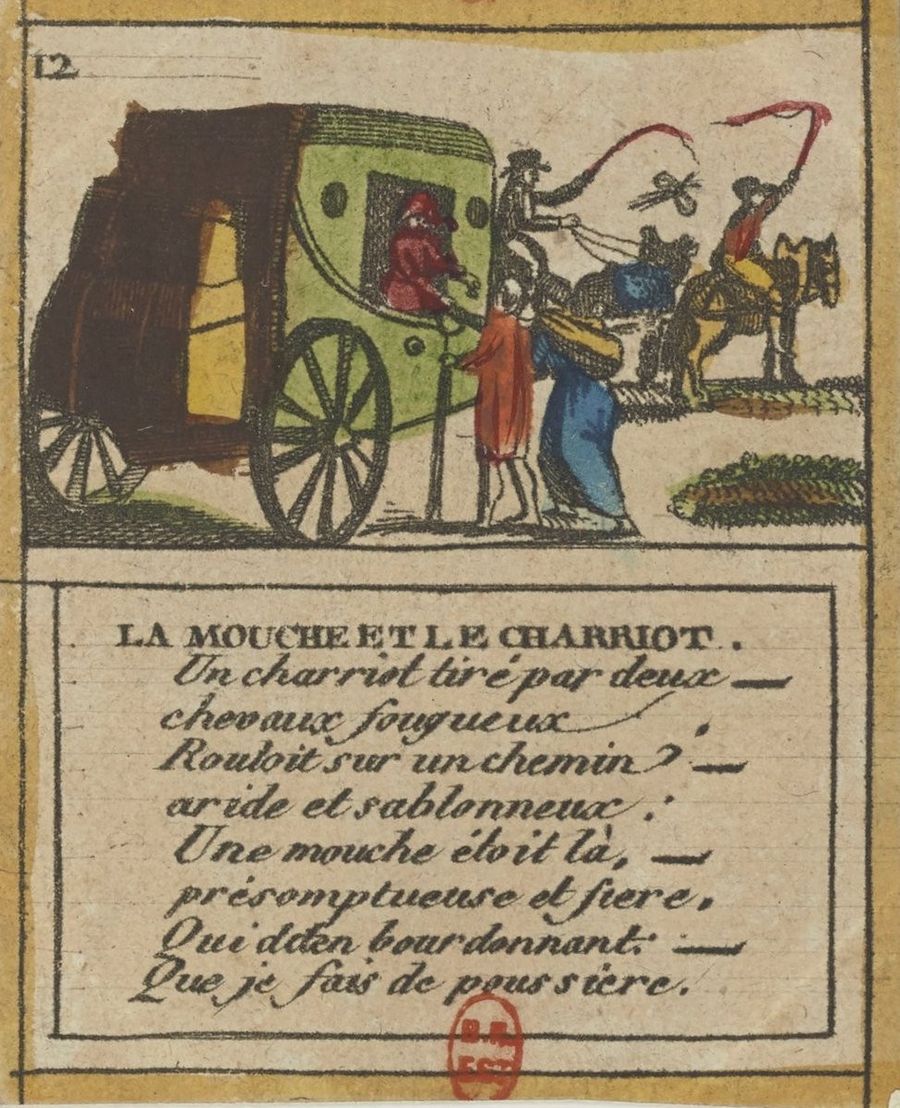 12
LA MOUCHE ET LE CHARRIOT.
Un charriot tiré par deux —
chevaux fougueux.
Rouloit sur un chemin —
aride et sablonneux :
Une mouche étoit là, —
présomptueuse et fiere.
Qui dden bourdonnant: —
Que je fais de poussiere.
EST